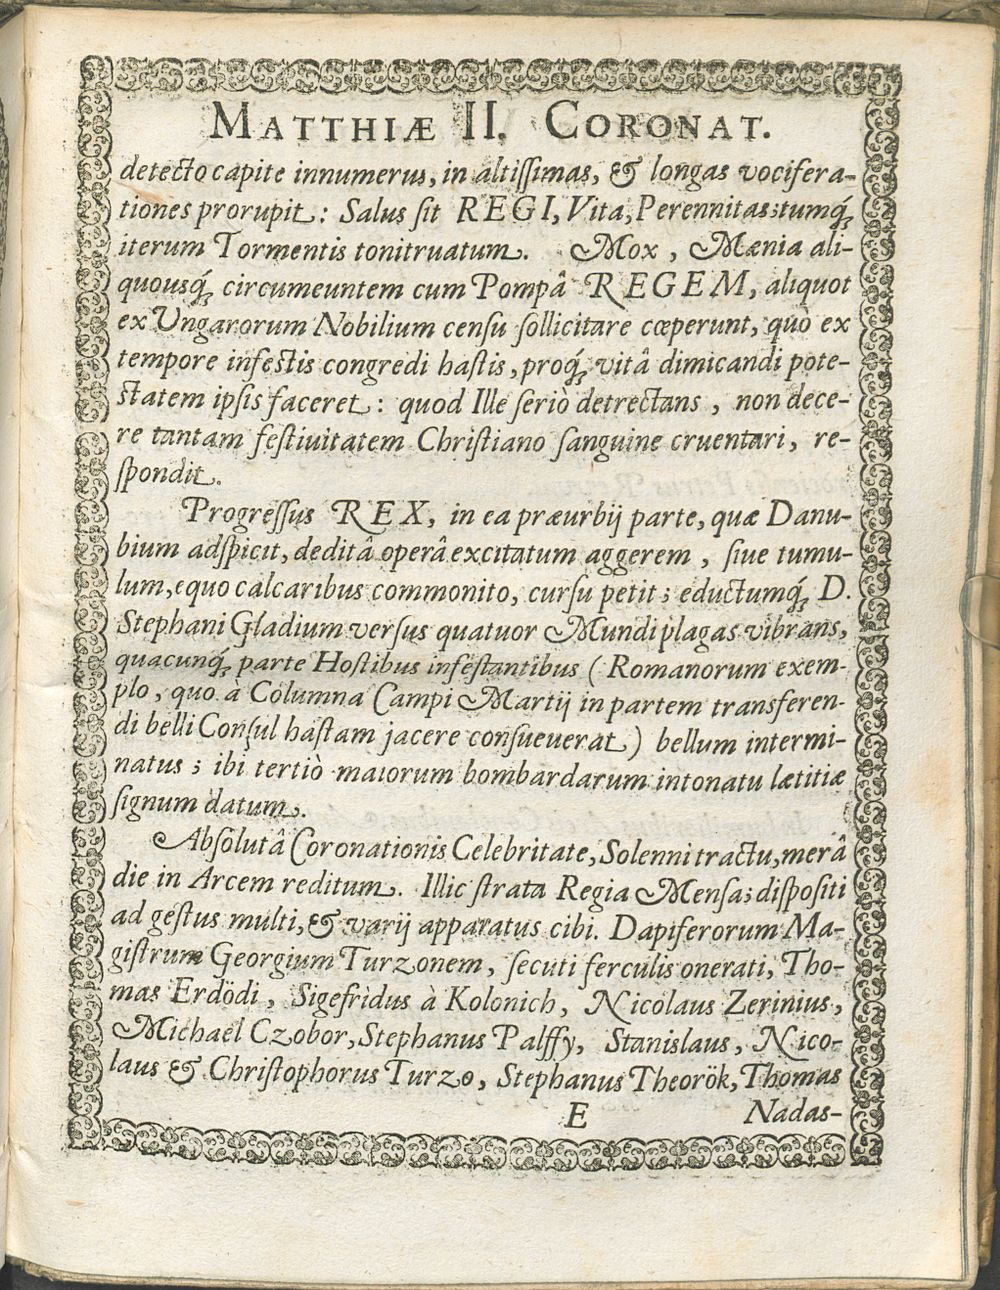 MATTHIÆ II. CORONAT.
detecto capite innumerus, in altiſſimas, & longas vocifera-
tiones prorupit: Salus ſit REGI, Vita, Perennitas; tumq́;
iterum Tormentis tonitruatum. Mox, Mænia ali-
quousq́; circumeuntem cum Pompâ REGEM, aliquot
ex Ungarorum Nobilium cenſu ſollicitare cœperunt, quò ex
tempore infeſtis congredi haſtis, proq́; vitâ dimicandi pote-
ſtatem ipſis faceret: quod Ille ſeriò detrectans, non dece-
re tantam feſtiuitatem Chriſtiano ſanguine cruentari, re-
ſpondit.
Progreſſus REX, in ea præurbij parte, quæ Danu-
bium adſpicit, deditâ operâ excitatum aggerem, ſiue tumu-
lum, equo calcaribus commonito, curſu petit; eductumq́; D.
Stephani Gladium verſus quatuor Mundi plagas vibrans,
quacunq́; parte Hoſtibus infeſtantibus (Romanorum exem-
plo, quo à Columna Campi Martij in partem transferen-
di belli Conſul haſtam jacere conſueuerat) bellum intermi-
natus; ibi tertiò maiorum bombardarum intonatu lætitiæ
ſignum datum.
Abſolutâ Coronationis Celebritate, Solenni tractu, merâ
die in Arcem reditum. Illic ſtrata Regia Menſa; diſpoſiti
ad geſtus multi, & varij apparatus cibi. Dapiferorum Ma-
giſtrum Georgium Turzonem, ſecuti ferculis onerati, Tho-
mas Erdödi, Sigefridus à Kolonich, Nicolaus Zerinius,
Michaël Czobor, Stephanus Palffy, Stanislaus, Nico-
laus & Chriſtophorus Turzo, Stephanus Theorök, Thomas
E Nadas-